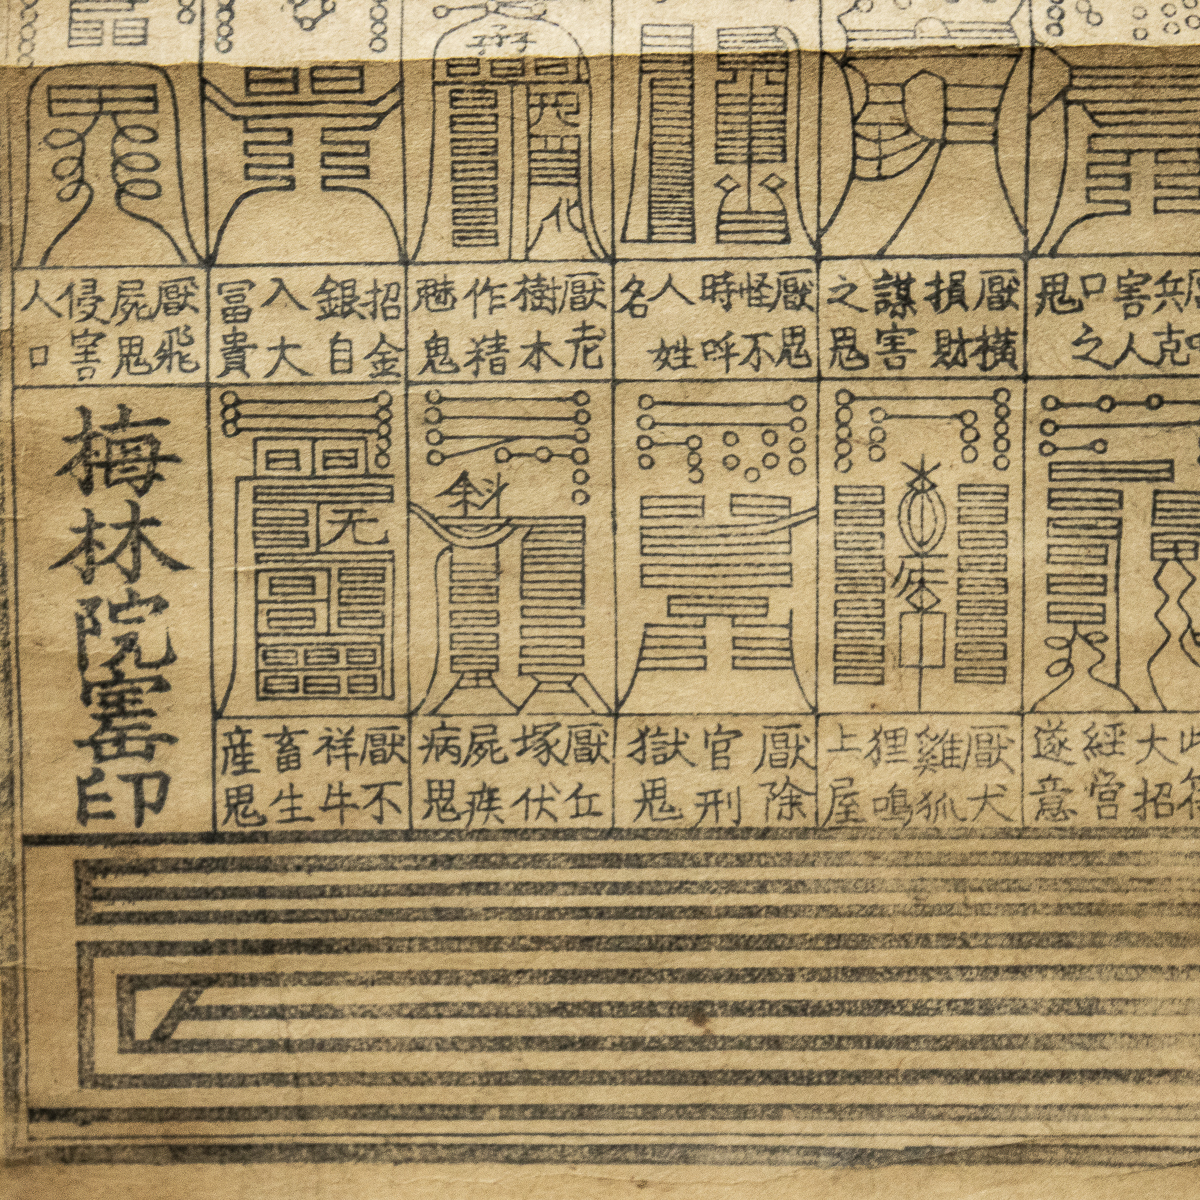 兵克害人口之鬼
厭橫損財謀害之鬼
厭鬼怪不時呼人姓名
厭老樹木作猜魅鬼
招金銀自入大冨貴
厭飛屍鬼侵害人口
大招經營遂意
厭犬雞狐狸鳴上屋
厭除官刑獄鬼
厭丘塚伏屍疾病鬼
厭不祥牛畜生産鬼
梅林院窰印